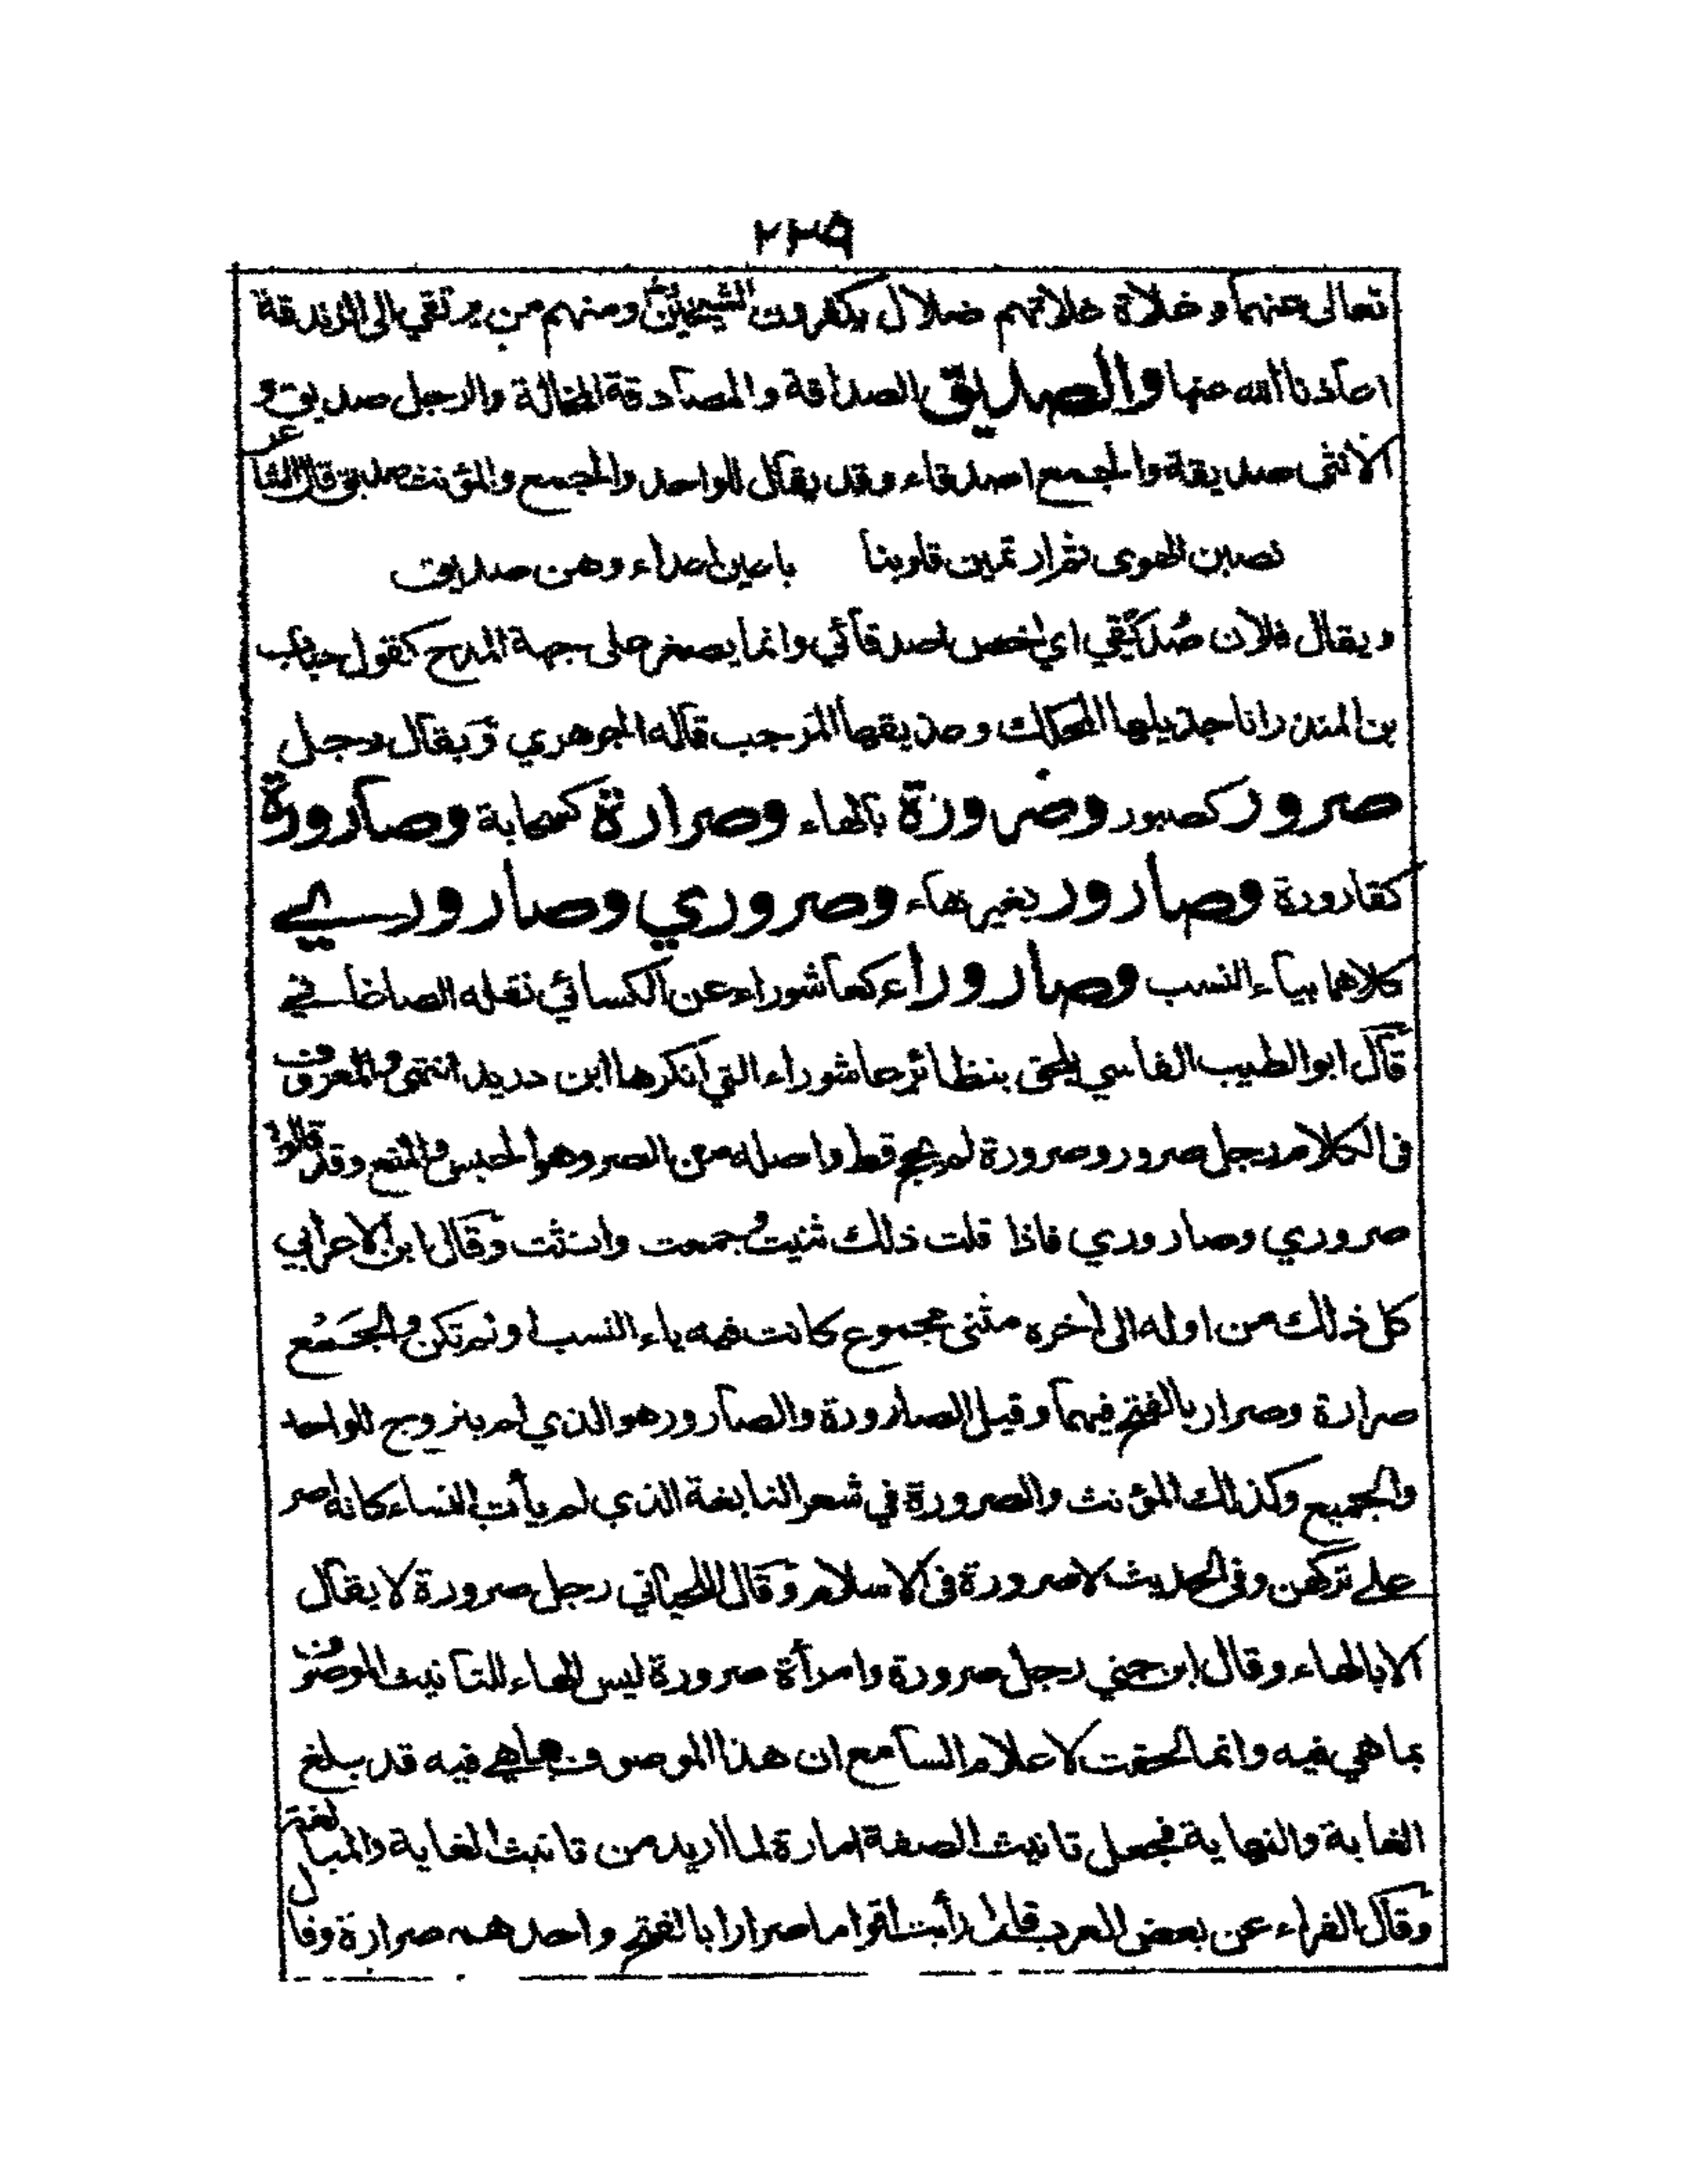 ٢٣٩
تعالى عنهما وغلاة غلاتهم ضلال يكفرون الشيخين ومنهم من يرتقي الى الزندقة
اعاذنا الله عنها والصديق الصداقة والمصادقة المخالة والرجل صديق و
الانثى صديقة والجمع اصدقاء وقد يقال للواحد والجمع والمؤنث صديق قال الشاعر
نصبن الهوى ثم ارتمين قلوبنا باعين اعداء وهن صديق
ويقال فلان صُدَيِّقي اي اخص اصدقائي وانما يصغر على جهة المدح كقول حباب
بن المنذر انا جذيلها المحكك وعذيقها المرجب قاله الجوهري ويقال رجل
صرور كصبور وصرورة بالهاء وصرارة كسحابة وصارورة
كقارورة وصارور بغير هاء وصروري وصاروري
كلاهما بياء النسب وصاروراء كعاشوراء عن الكسائي نقله الصاغاني
قال ابو الطيب الفاسي يلحق بنظائر عاشوراء التي انكرها ابن دريد انتهى والمعروف
فى الكلام رجل صرور وصرورة لم يحج قط واصله من الصر وهو الحبس والمنع وقد قالوا
صروري وصاروري فاذا قلت ذلك ثنيت وجمعت وانثت وقال ابن الاعرابي
كل ذلك من اوله الى آخره مثنى مجموع كانت فيه ياء النسب او لم تكن والجَمْع
صرارة وصرار بالفتح فيهما وقيل الصارورة والصارور هو الذي لم يتزوج للواحد
والجميع وكذلك المؤنث والصرورة في شعر النابغة الذي لم يأت النساء كانه اصر
على تركهن وفى الحديث لا صرورة فى الاسلام وقال اللحياني رجل صرورة لا يقال
الا بالهاء وقال ابن جني رجل صرورة وامرأة صرورة ليس الهاء للتانيث الموصوف
بما هي فيه وانما لحقت لاعلام السامع ان هذا الموصوف بما هي فيه قد بلغ
الغاية والنهاية فجعل تانيث الصفة امارة لما اريد من تانيث الغاية والمبالغة
وقال الفراء عن بعض العرب قال رأيت اقواما صرارا بالفتح واحدهم صرارة وقال